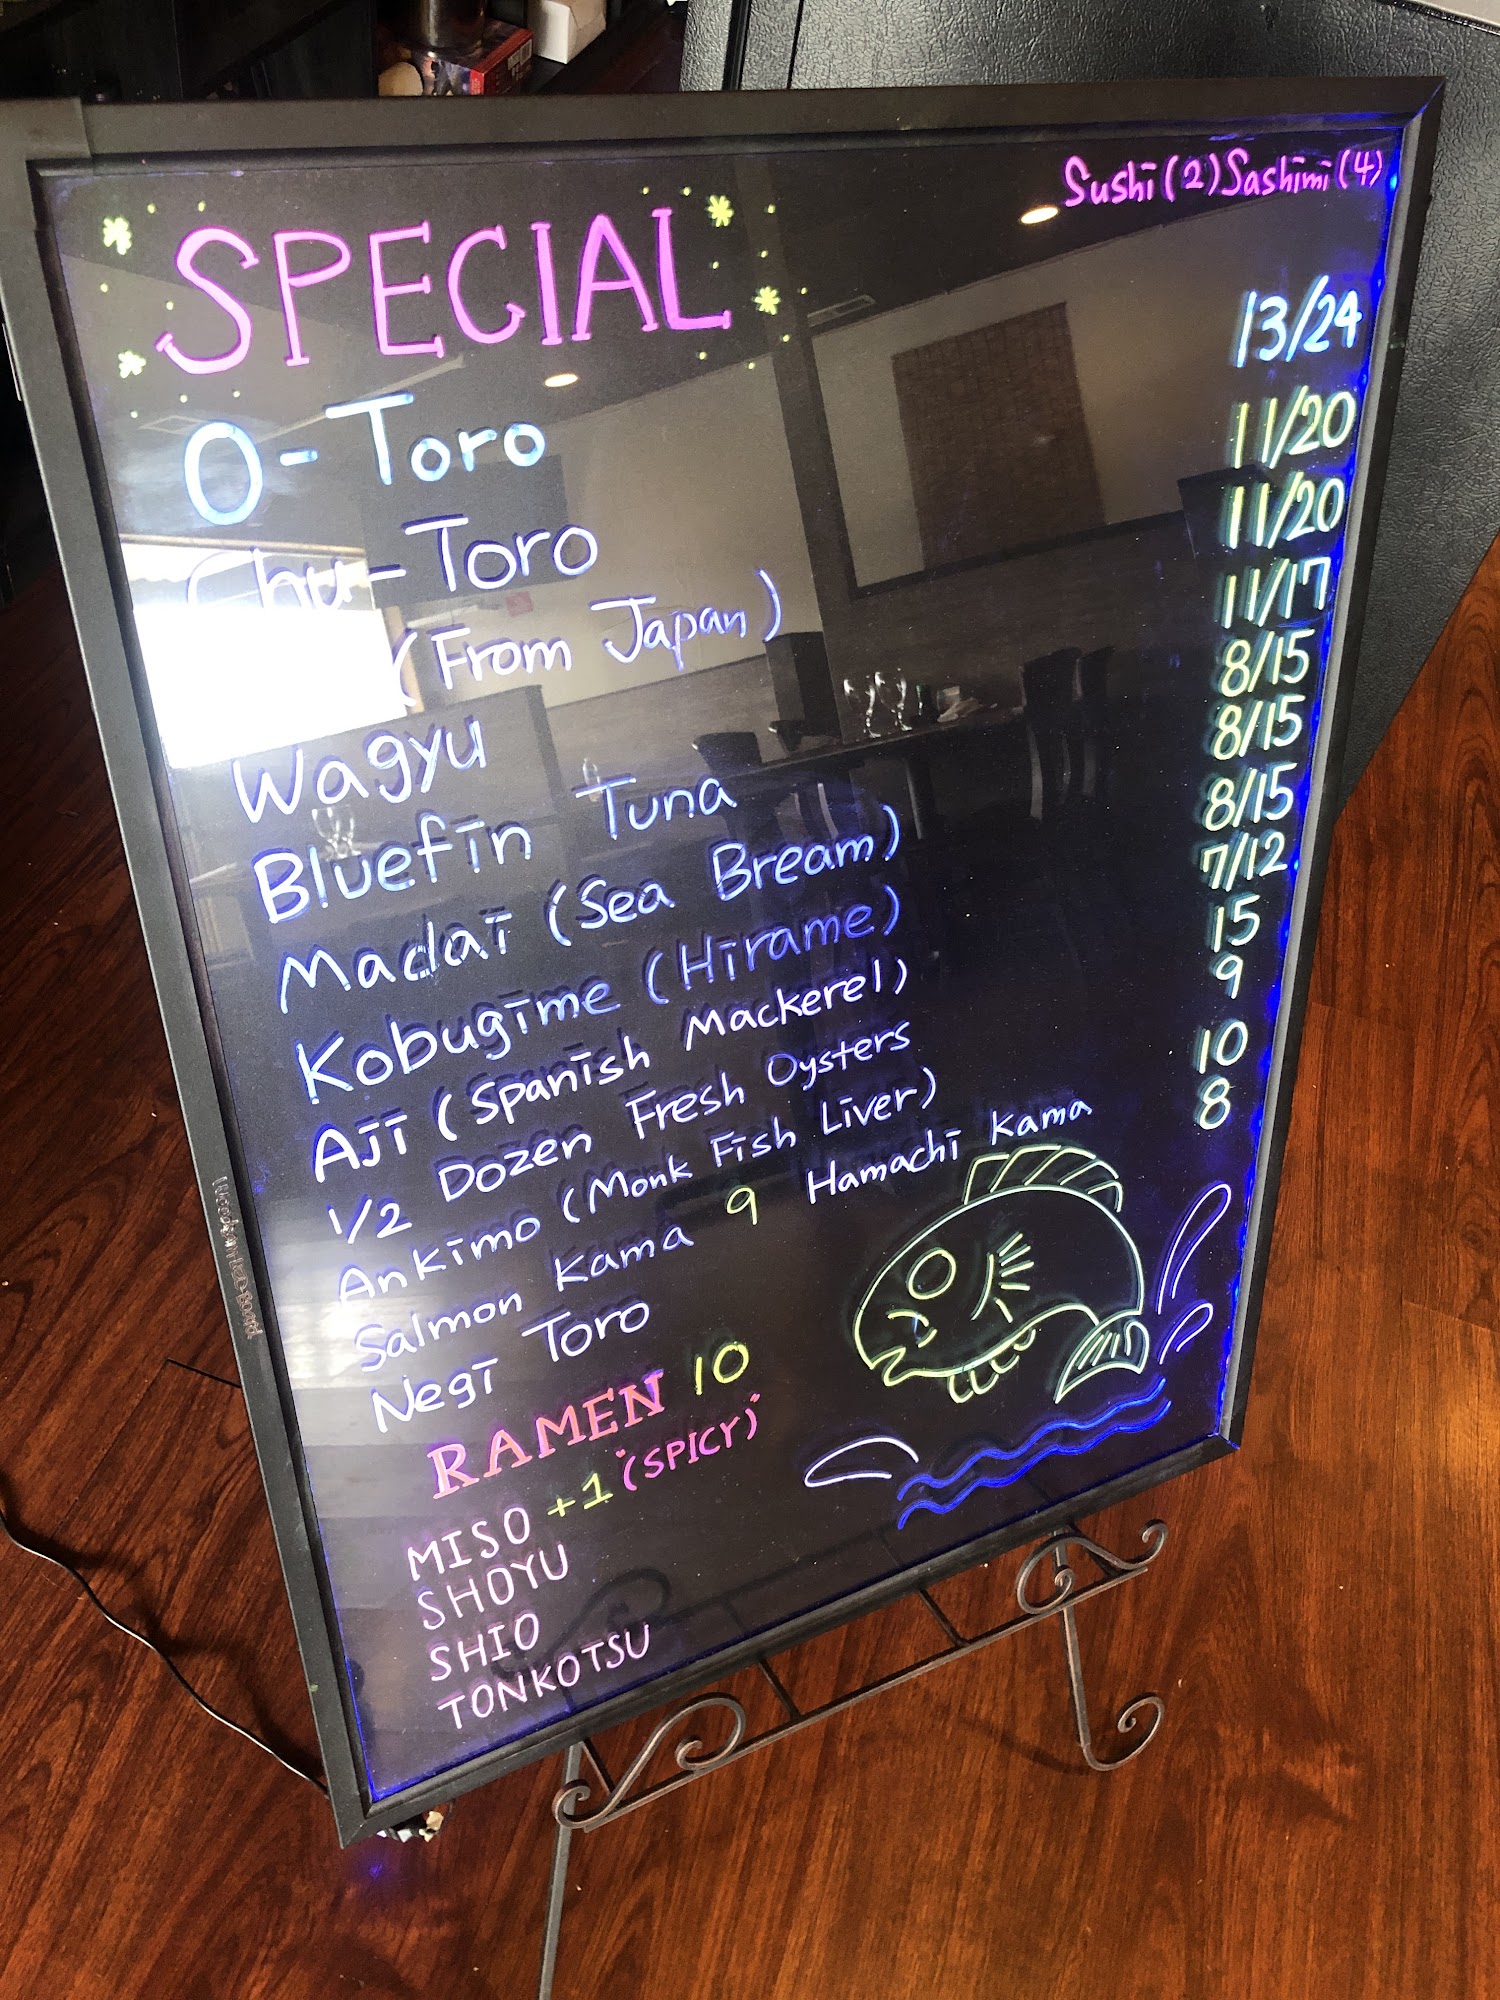 Sushi (2) Sashimi (4)
SPECIAL
O-Toro 13/24
Chu-Toro 11/20
(From Japan) 11/20
Wagyu 11/17
Bluefin Tuna 8/15
Madai (Sea Bream) 8/15
Kobugime (Hirame) 8/15
Aji (Spanish Mackerel) 7/12
1/2 Dozen Fresh Oysters 15
Ankimo (Monk Fish Liver) 9
Salmon Kama 9 Hamachi Kama 10
Negi Toro 8
RAMEN 10
MISO +1 "(SPICY)"
SHOYU
SHIO
TONKOTSU